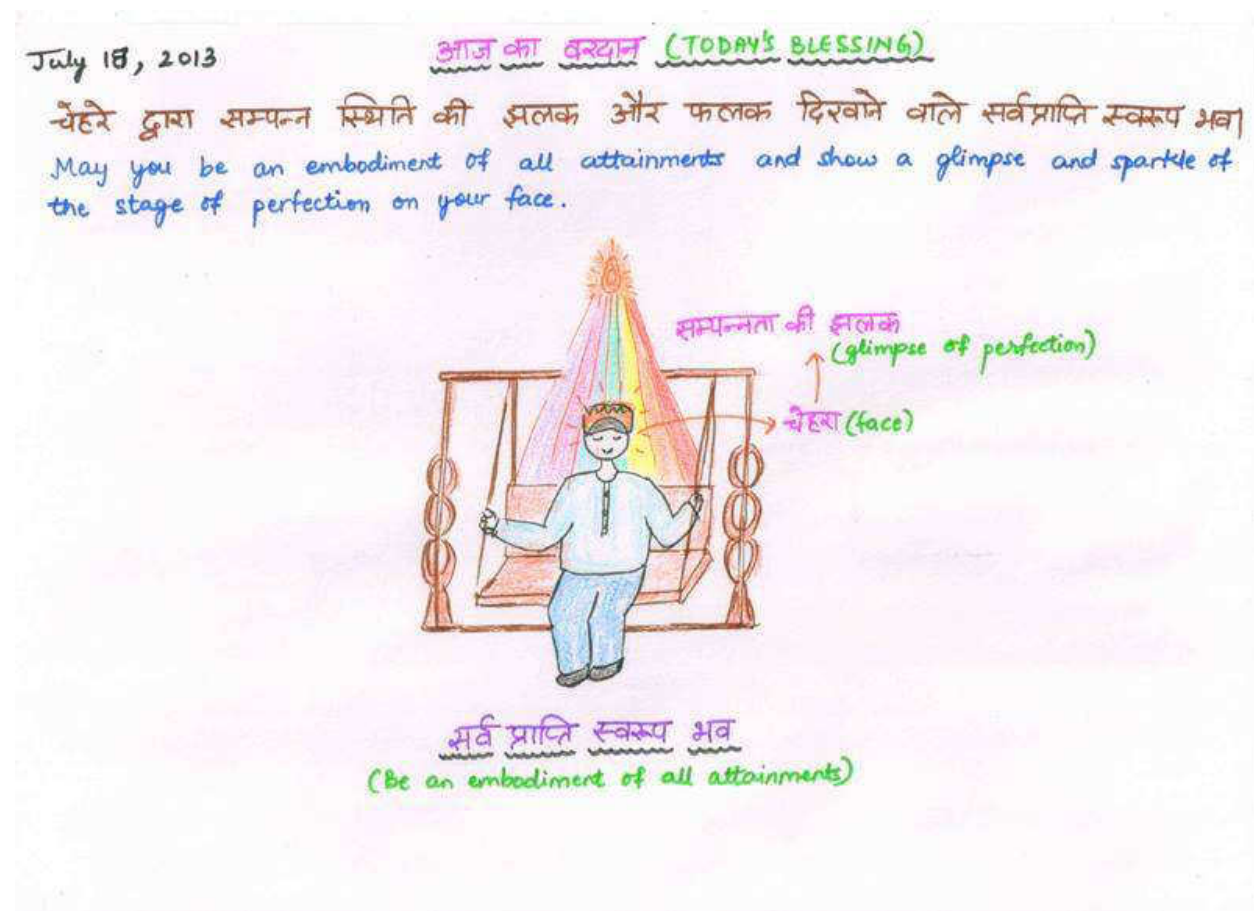 July 18, 2013
आज का वरदान (TODAY'S BLESSING)
चेहरे द्वारा सम्पन्न स्थिति की झलक और फलक दिखाने वाले सर्वप्राप्ति स्वरूप भव।
May you be an embodiment of all attainments and show a glimpse and sparkle of
the stage of perfection on your face.
सम्पन्नता की झलक
(glimpse of perfection)
चेहरा (face)
सर्व प्राप्ति स्वरूप भव
(Be an embodiment of all attainments)